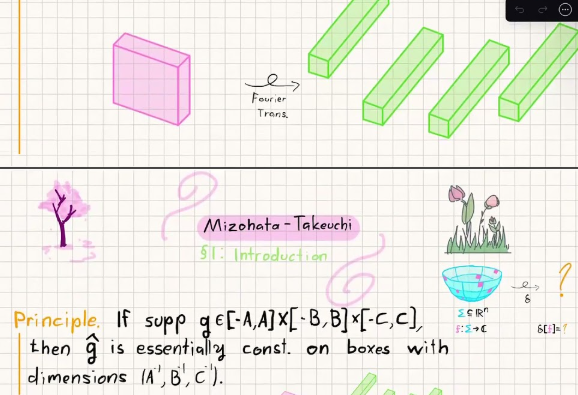 Fourier
Trans.
Mizohata-Takeuchi
§1: Introduction
?
Σ ⊆ ℝⁿ
f: Σ → ℂ
Principle. If supp g ∈ [-A,A]×[-B,B]×[-C,C],
then ĝ is essentially const. on boxes with
dimensions (A⁻¹, B⁻¹, C⁻¹).